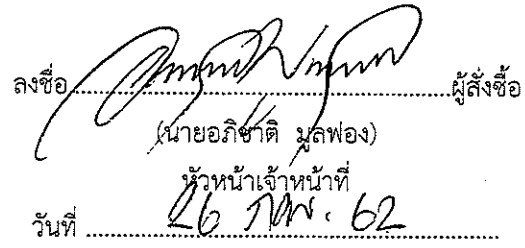 ลงชื่อ..............................ผู้สั่งซื้อ
(นายอภิชาติ มูลฟอง)
หัวหน้าเจ้าหน้าที่
วันที่ 26 กพ. 62